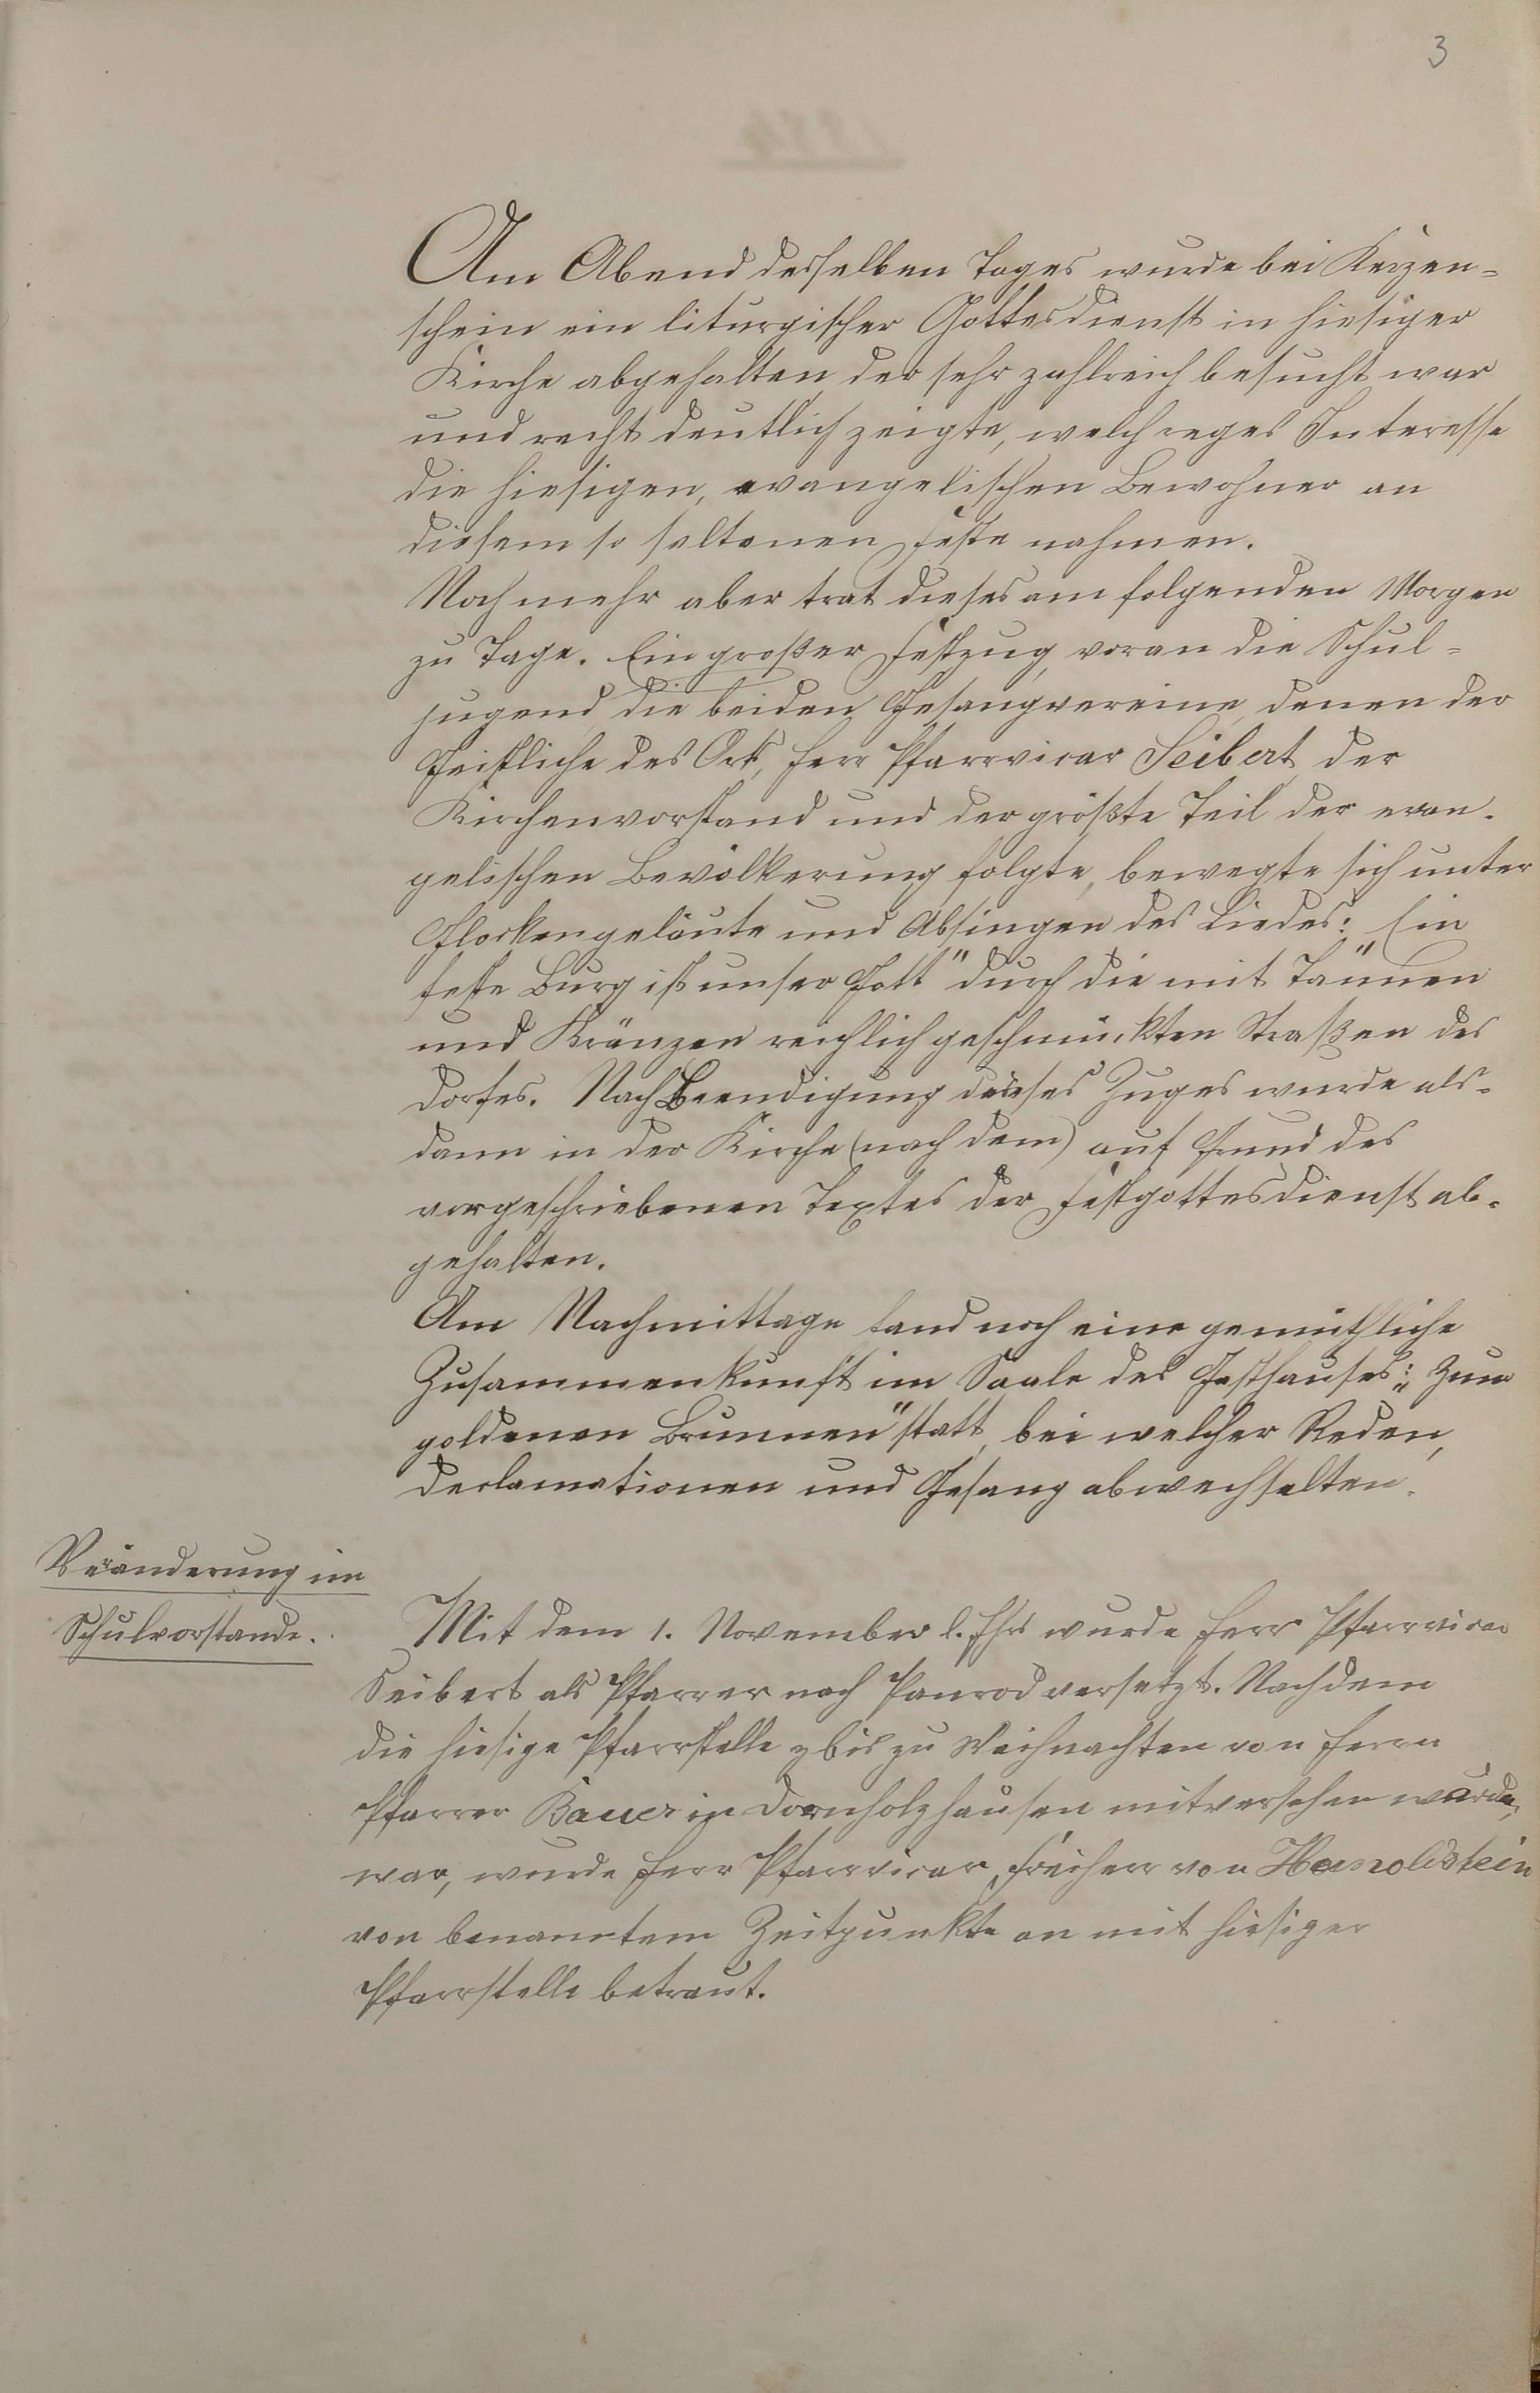 3
Am Abend desselben Tages wurde bei Kerzen=
schein ein liturgischer Gottesdienst in hiesiger
Kirche abgehalten, der sehr zahlreich besucht war
und recht deutlich zeigte, welch reges Interesse
die hiesigen, evangelischen Bewohner an
diesem so seltenen Feste nahmen.
Noch mehr aber trat dieses am folgenden Morgen
zu Tage. Ein großer Festzug, voran die Schul=
jugend, die beiden Gesangvereine, denen der
Geistliche des Orts, Herr Pfarrvicar Seibert, der
Kirchenvorstand und der größte Teil der evan=
gelischen Bevölkerung folgte, bewegte sich unter
Glockengeläute und Absingen des Liedes: „Ein
feste Burg ist unser Gott" durch die mit Tannen
und Kränzen reichlich geschmückten Straßen des
Dorfes. Nach Beendigung dieses Zuges wurde als=
dann in der Kirche (nach dem) auf Grund des
vorgeschriebenen Textes der Festgottesdienst ab=
gehalten.
Am Nachmittage fand noch eine gemüthliche
Zusammenkunft im Saale des Gasthauses: „Zum
goldenen Brunnen" statt, bei welcher Reden,
Declamationen und Gesang abwechselten.
Veränderung im
Schulvorstande.
Mit dem 1. November l. Jhrs wurde Herr Pfarrvicar
Seibert als Pfarrer nach Panrod versetzt. Nachdem
die hiesige Pfarrstelle bis zu Weihnachten von Herrn
Pfarrer Bauer in Dornholzhausen mitversehen wurde,
war, wurde Herr Pfarrvicar, Freiherr von
von benanntem Zeitpunkte an mit hiesiger
Pfarrstelle betraut.